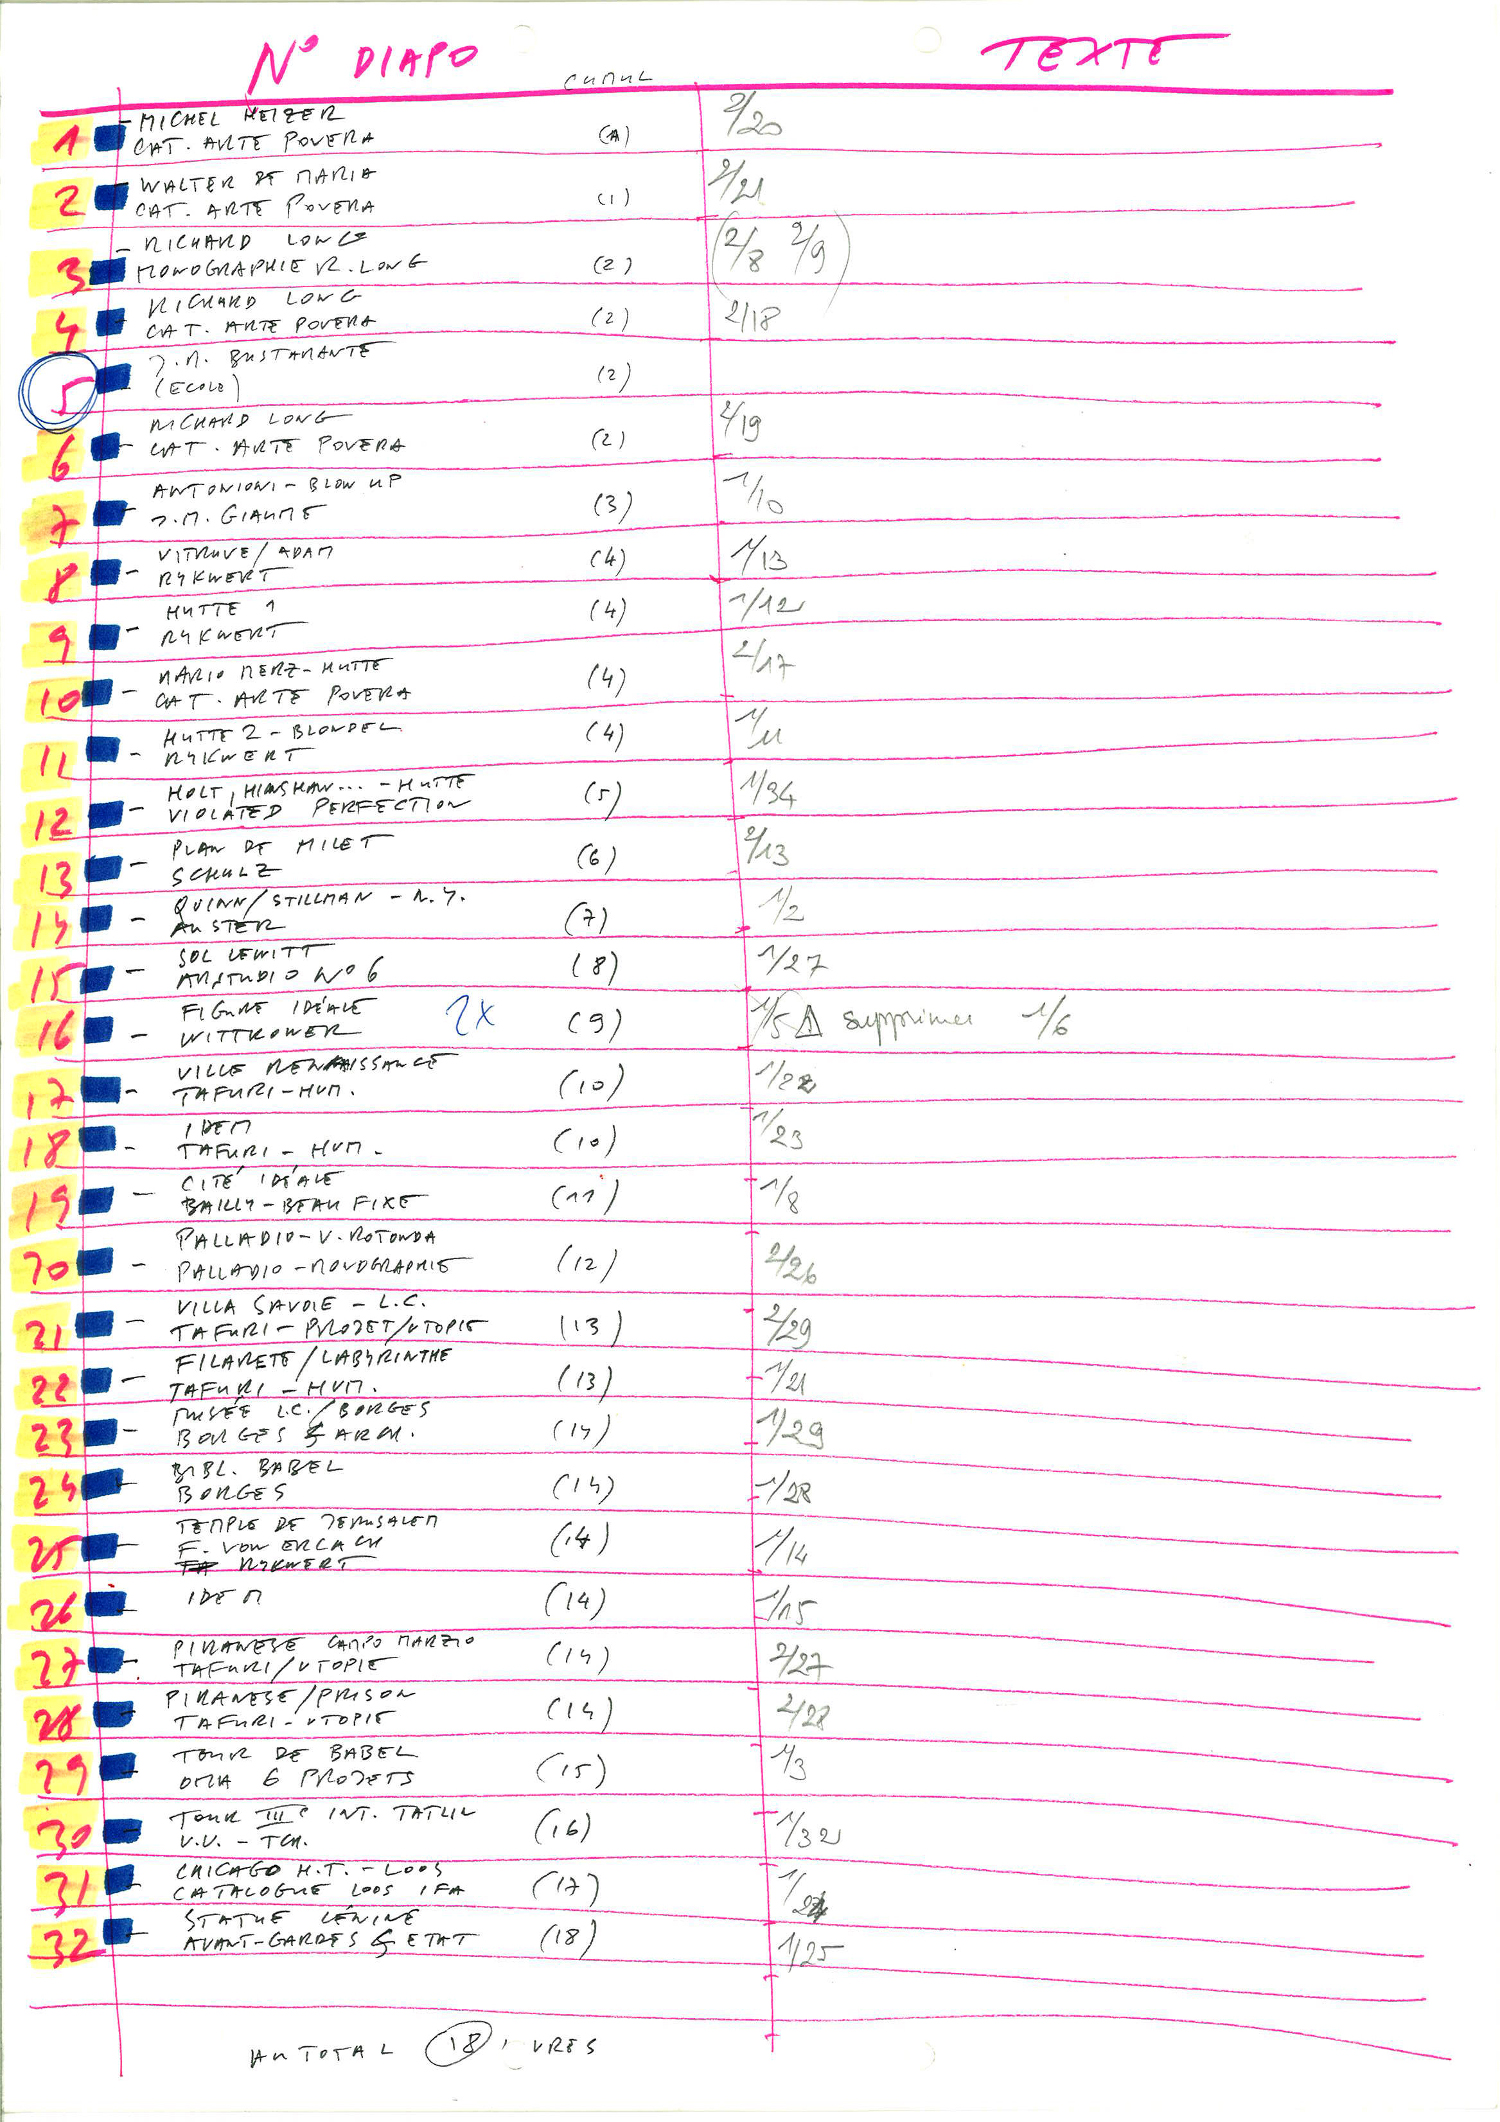 N° DIAPO CUMUL TEXTE
1 - MICHEL HEIZER
CAT. ARTE POVERA (1) 2/20
2 WALTER DE MARIA
CAT. ARTE POVERA (1) 2/21
3 - RICHARD LONG
MONOGRAPHIE R. LONG (2) (2/8 2/9)
4 RICHARD LONG
CAT. ARTE POVERA (2) 2/18
5 J.M. BUSTAMANTE
(ECOLE) (2)
6 RICHARD LONG
CAT. ARTE POVERA (2) 2/19
7 - ANTONIONI - BLOW UP
J.M. GIAUME (3) 1/10
8 - VITRUVE/ADAM
RYKWERT (4) 1/13
9 - HUTTE 1
RYKWERT (4) 1/12
10 - MARIO MERZ - HUTTE
CAT. ARTE POVERA (4) 2/17
11 - HUTTE 2 - BLONDEL
RYKWERT (4) 1/11
12 - HOLT, HINSHAW... - HUTTE
VIOLATED PERFECTION (5) 1/34
13 - PLAN DE MILET
SCHULZ (6) 2/13
14 - QUINN/STILLMAN - N.Y.
AUSTER (7) 1/2
15 - SOL LEWITT
ARTSTUDIO N° 6 (8) 1/27
16 - FIGURE IDÉALE
WITTKOWER 2X (9) 1/5 ⚠ supprimer 1/6
17 - VILLE RENAISSANCE
TAFURI - HUM. (10) 1/22
18 - IDEM
TAFURI - HUM. (10) 1/23
19 - CITÉ IDÉALE
BAILLY - BEAU FIXE (11) 1/8
20 - PALLADIO - V. ROTONDA
PALLADIO - MONOGRAPHIE (12) 2/26
21 - VILLA SAVOIE - L.C.
TAFURI - PROJET/UTOPIE (13) 2/29
22 - FILARETE/LABYRINTHE
TAFURI - HUM. (13) 1/21
23 - MUSÉE L.C./BORGES
BORGES & ARCH. (14) 1/29
24 - BIBL. BABEL
BORGES (14) 1/28
25 - TEMPLE DE JERUSALEM
F. VON ERLACH
RYKWERT (14) 1/14
26 IDEM (14) 1/15
27 - PIRANESE CAMPO MARZIO
TAFURI/UTOPIE (14) 2/27
28 PIRANESE/PRISON
TAFURI - UTOPIE (14) 2/28
29 - TOUR DE BABEL
OMA 6 PROJETS (15) 1/3
30 - TOUR IIIe INT. TATLIN
V.V. - TCH. (16) 1/32
31 - CHICAGO H.T. - LOOS
CATALOGUE LOOS IFA (17) 1/24
32 - STATUE LÉNINE
AVANT-GARDES & ETAT (18) 1/25
AU TOTAL 18 LIVRES